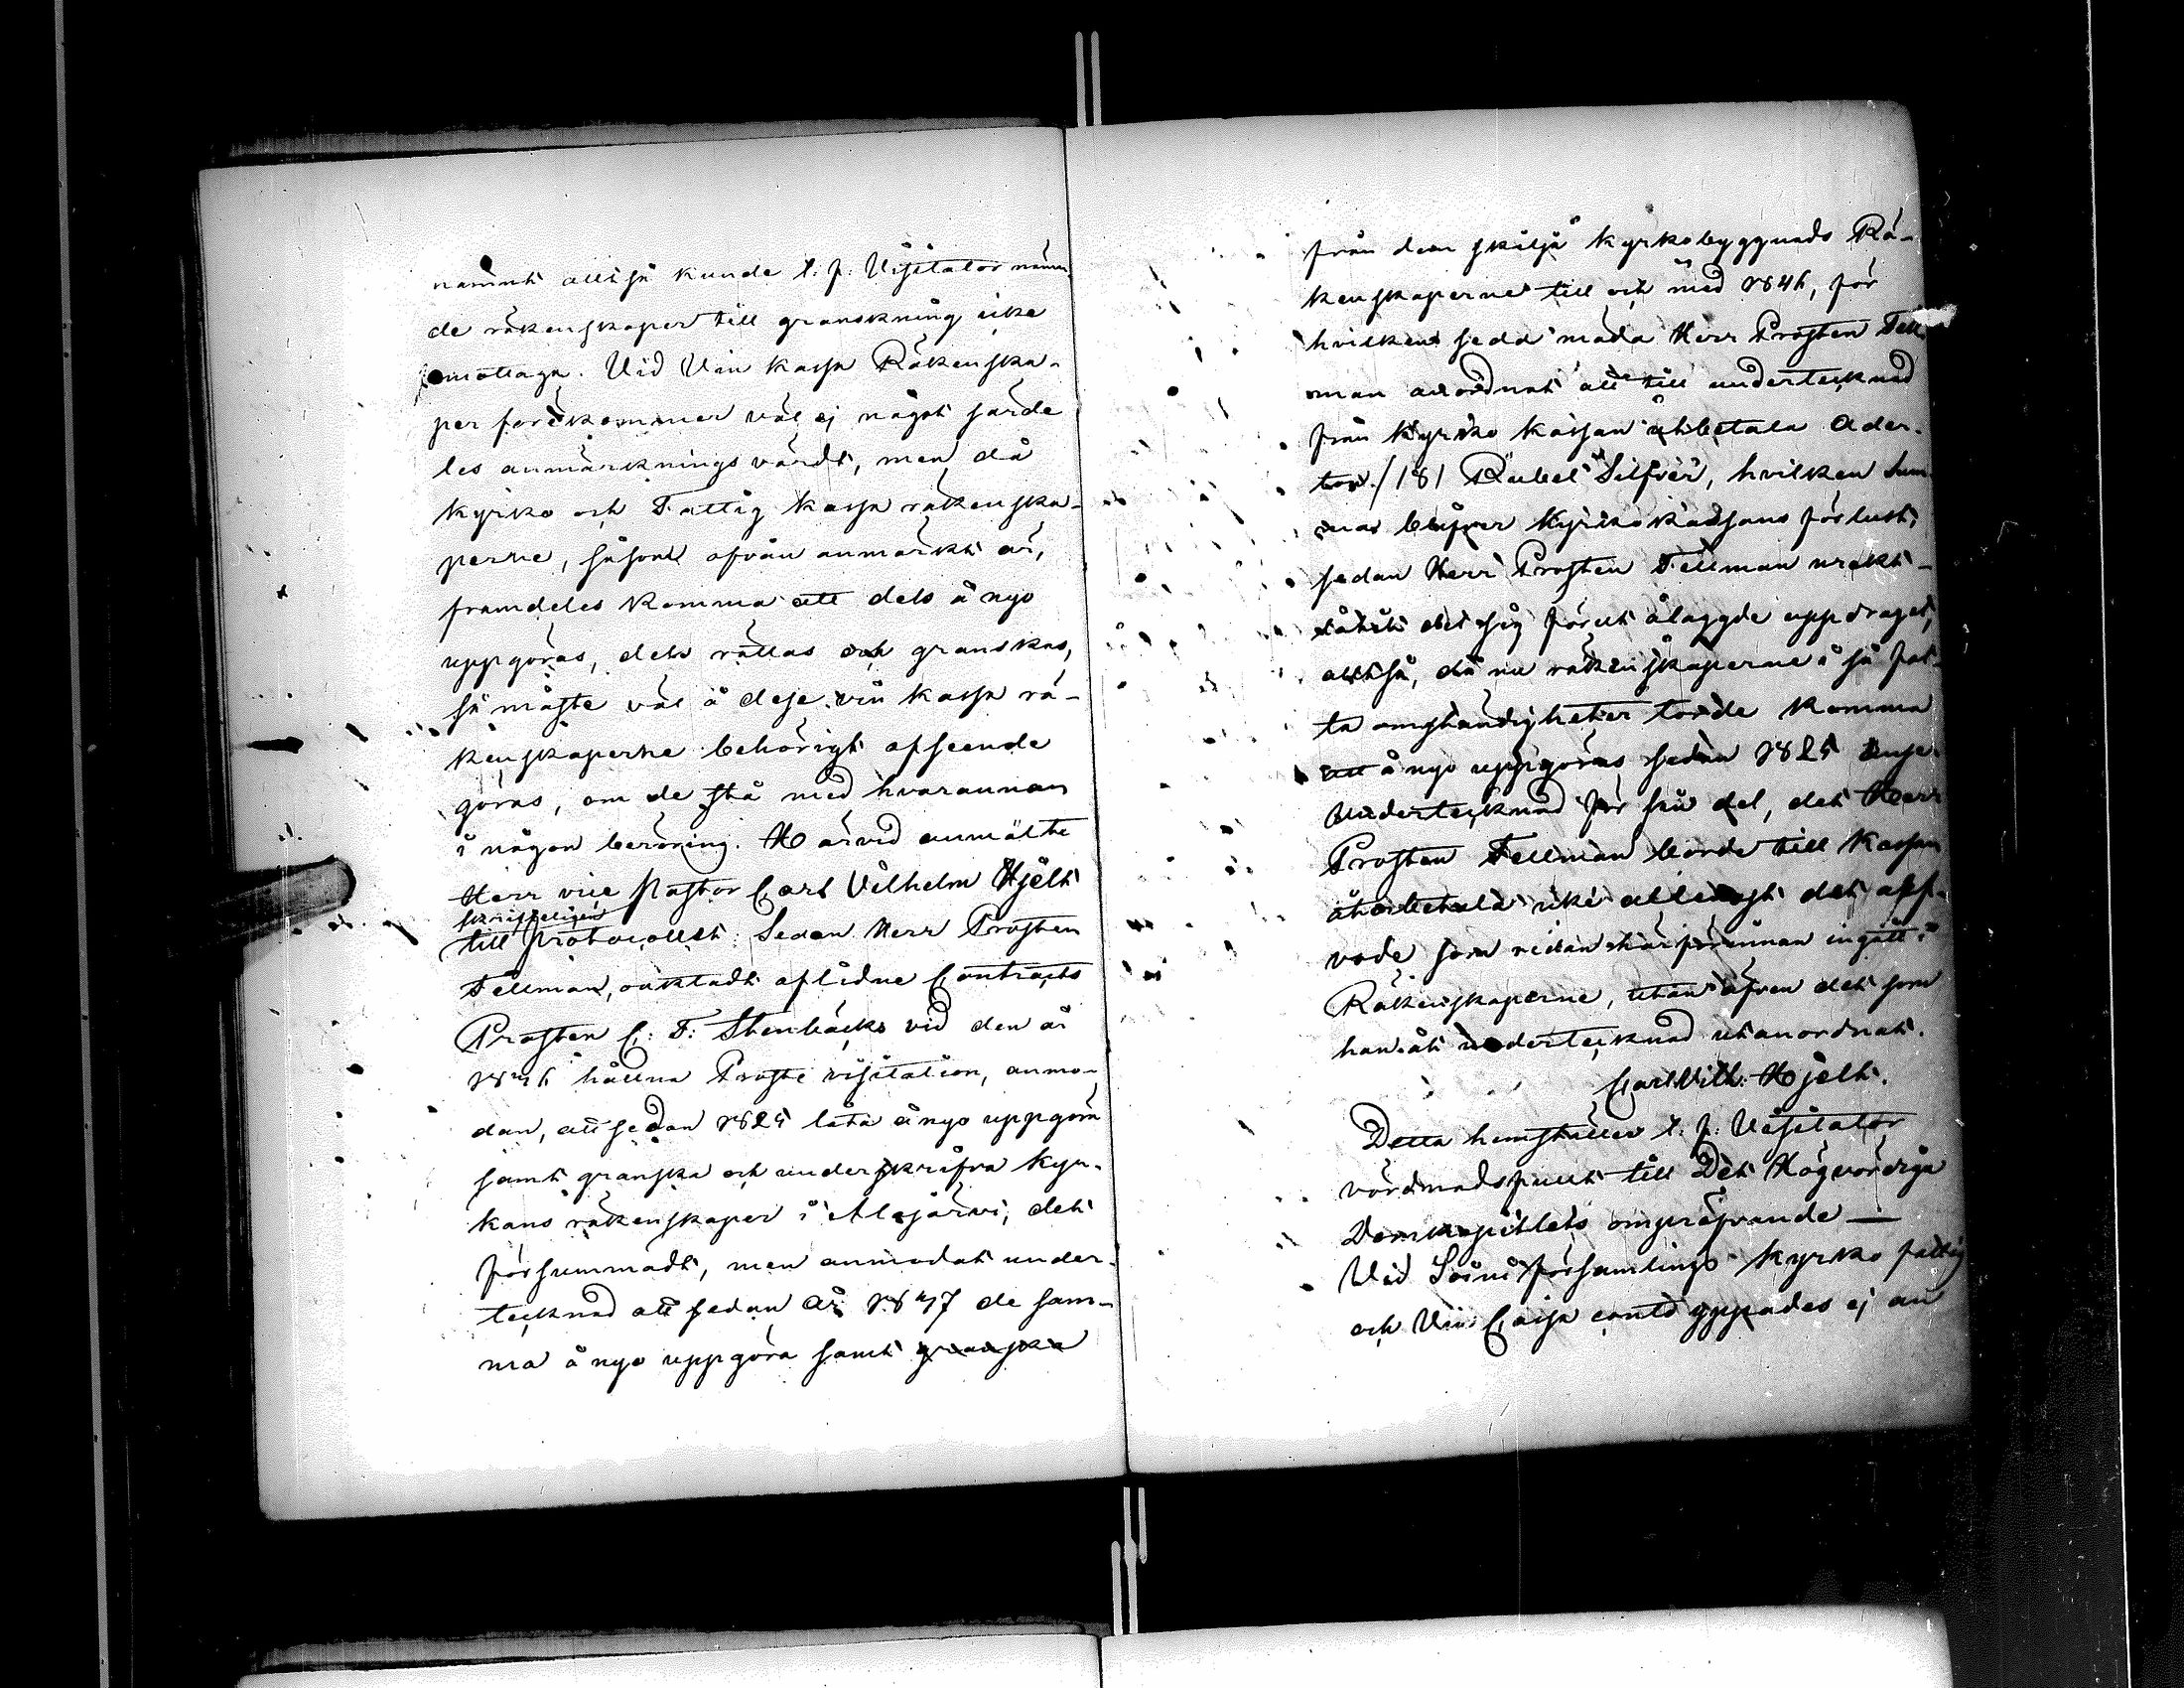 nämnt alltså kunde t. f. Visitator nämn
de räkenskaper till granskning icke
emottaga. Vid Vin kassa Räkenska-
per förekommer väl ej något särde
les anmärkningsvärdt, men då
kyrko och Fattig kassa räkenska-
perne, såsom ofvan anmärkt är,
framdeles komma att dels å nyo
uppgöras, dels rättas och granskas,
så måste väl å dese vin kassa rä-
kenskaperne behörigt afseende
göras, om de stå med hvarannan
i någon beröring. Härvid anmälte
Herr vice Pastor Carl Vilhelm Hjelt
skrifteligen
till Protocollet: Sedan Herr Prosten
Fellman, oaktadt aflidne Contracts
Prosten C. F. Stenbäcks vid den år
1846 hållna Proste visitation, anmo-
dan, att sedan 1825 låta å nyo uppgöra
samt granska och underskrifva kyr-
kans räkenskaper i Alajärvi, det
försummadt, men anmodat under-
tecknad att sedan år 1847 de sam-
ma å nyo uppgöra samt granska
från dem skilja kyrkobyggnads Rä-
kenskaperne till och med 1846, för
hvilken möda Herr Prosten Fell
man anordnat att till undertecknad
från Kyrko kassan utbetala Ader-
ton /18/ Rubel Silfver, hvilken Sum
ma blifver Kyrko kassans förlust,
sedan Herr Prosten Fellman urakt-
låtit det sig förut ålaggde uppdraget,
alltså, då nu räkenskaperne i så fat-
ta omständigheter torde komma
att å nyo uppgöras sedan 1825 anse
Undertecknad för sin del, det Herr
Prosten Fellman borde till Kassan
återbetala icke allenast det arf-
vode som redan härförinnan ingått i
Räkenskaperne, utan äfven det som
han åt undertecknad utanordnat.
Carl Vilh. Hjelt.
Detta hemställer t. f. Visitator
vördnadsfullt till Det Högvördiga
Domkapitlets ompröfvande —
Vid Soini församlings kyrko fattig
och Vin Cassa conto yppades ej an